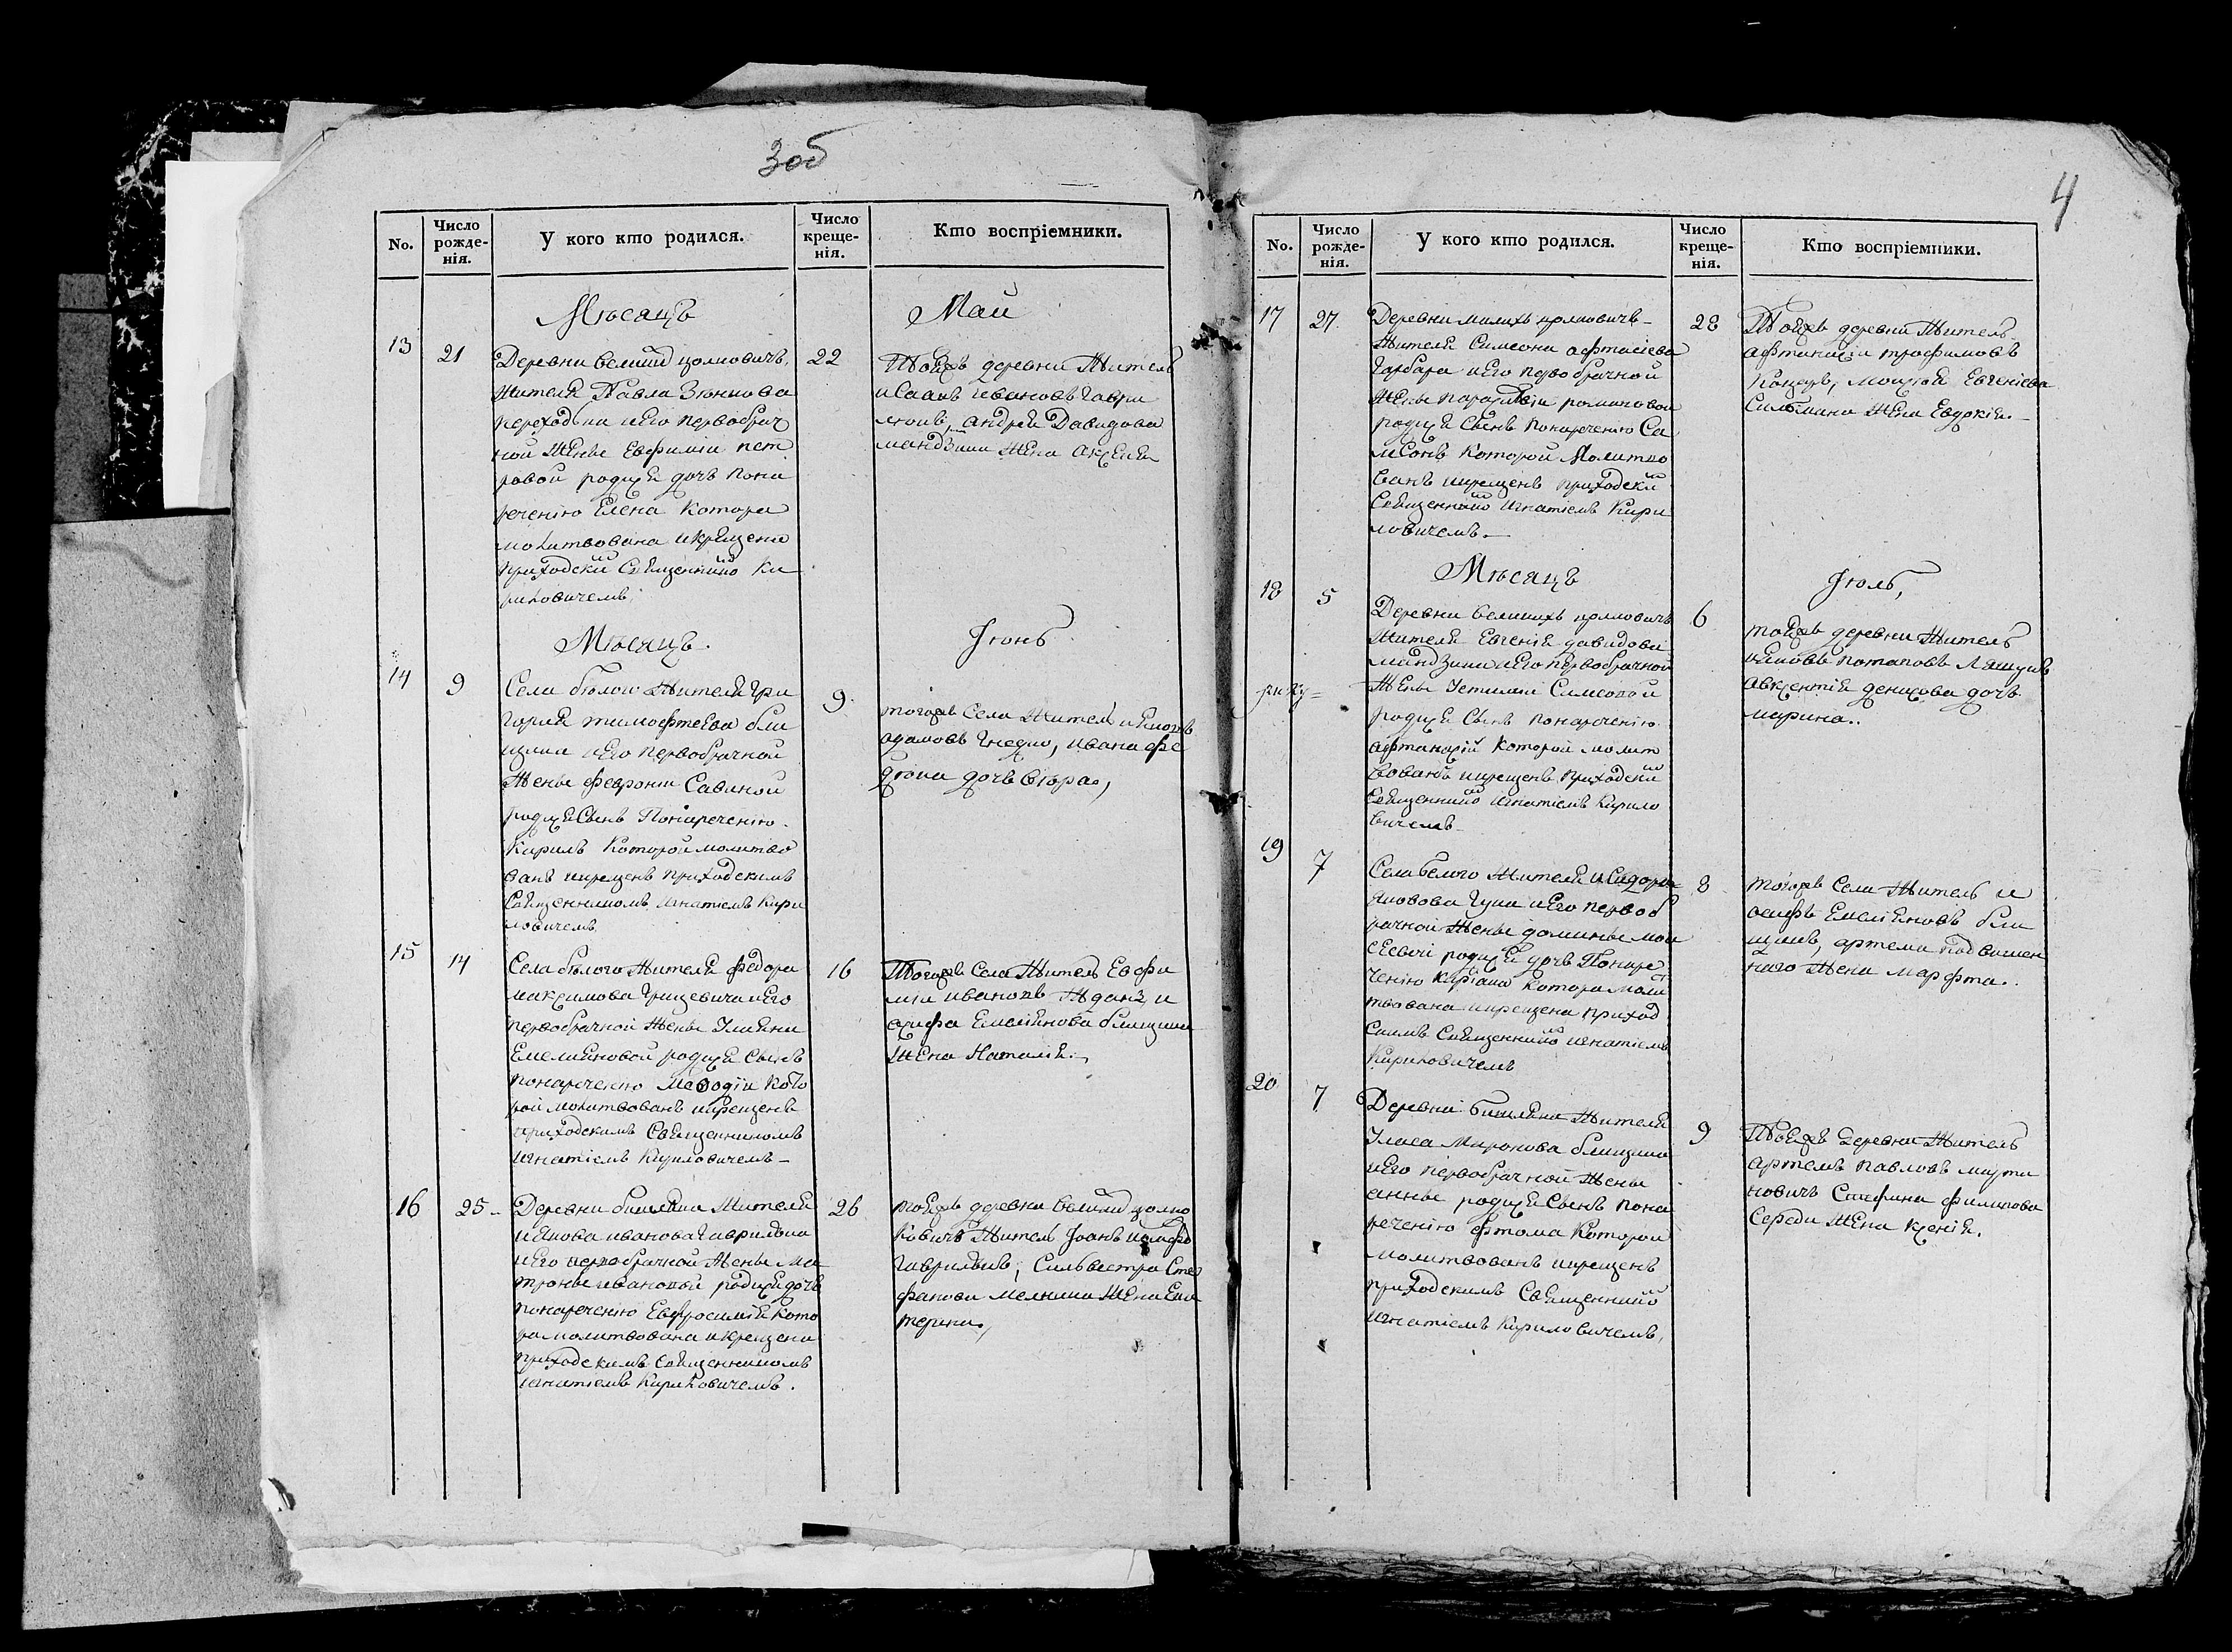 3об
No.
Число рожде-нія.
У кого кто родился.
Число креще-нія.
Кто воспріемники.
Мѣсяцъ Май
13 21
Деревни
жителя Павла
и его первобрач
ной женѣ Евфиміи пет
ровой родися дочь пона
реченію Елена котора
молитвована и крещена
приходски Священнико Ки
риловичемъ
22
Тояжъ деревни житель
Исаакъ Ивановъ Гаври
люкъ, Андрея Давидова
мандзика жена Аксенія
Мѣсяцъ Іюнь
14 9
Села бѣлого жителя Гри
горія тимофтеева бли
щика и его первобрачной
женѣ февроніи Савиной
родися Сынъ Понареченію
Кирилъ Которой молитво
ванъ и крещенъ приходскимъ
Священникомъ Игнатіемъ Кири
ловичемъ
9
тогожъ Села житель Яковъ
адамовъ Гнедко, Ивана фе
дюка дочь
15 14
Села бѣлого жителя федора
максимова Грицевича и его
первобрачной женѣ Уліяни
Емелияновой родися Сынъ
понареченію Меѳодіи кото
рой молитвованъ и крещенъ
приходскимъ Священникомъ
Игнатіемъ Кириловичемъ
16
Тогожъ Села житель Евфи
мъ ивановъ Жданъ, и
Емеліянова блищика
жена Наталія.
16 25
Деревни жителя
Якова иванова Гаврилюка
и его первобрачной женѣ Ма
тронѣ ивановой родися дочь
понареченію Евфросинія кото
ра молитвована и крещена
приходскимъ Священникомъ
Игнатіемъ Кириловичемъ.
26
тояжъ деревни
житель Іоанъ
Гаврилюкъ, Сильвестра Сте
фанова мелника жена Ека
терина,
4
No.
Число рожде-нія.
У кого кто родился.
Число креще-нія.
Кто воспріемники.
17 27.
Деревни малихъ
жителя Симеона афтасіева
Гарбара и его первобрачной
женѣ романовой
родися Сынъ понареченію Са
мсонъ Которой Молитво
ванъ и крещенъ приходски
Священнико Игнатіемъ Кири
ловичемъ.
28
Тояжъ деревни житель
афтанасіи трофимовъ
Евгеніева
жена Евдокія.
Мѣсяцъ Іюль,
18 5
Деревни великихъ
жителя Евгенія давидова
мандзика и его первобрачной
женѣ Устиніи Симеовой
родися Сынъ понареченію
афтанасій которой молит
вованъ и крещенъ приходски
Священнико Игнатіемъ Кирило
вичемъ
6
тояжъ деревни житель
Яковъ потаповъ
Авксентія денисова дочь
марина..
19 7
Села белого жителя Исидора
яковова Гука и его первоб
рачной женѣ домникѣ мои
сеевы родися дочь Понаре
ченію котора моли
твована и крещена приход
скимъ Священнико Игнатіемъ
Кириловичемъ
8
тогожъ Села житель и
осифъ Емеліяновъ бли
щикъ, артема
жена марфта.
20 7
Деревни жителя
Уласа Миронова блищика
и его первобрачной женѣ
аннѣ родися Сынъ пона
реченію фтома Которой
молитвованъ и крещенъ
приходскимъ Священнико
Игнатіемъ Кириловичемъ,
9
Тояжъ деревни житель
Артемъ Павловъ марти
новичъ Стефана филипова
Середи жена ксенія.